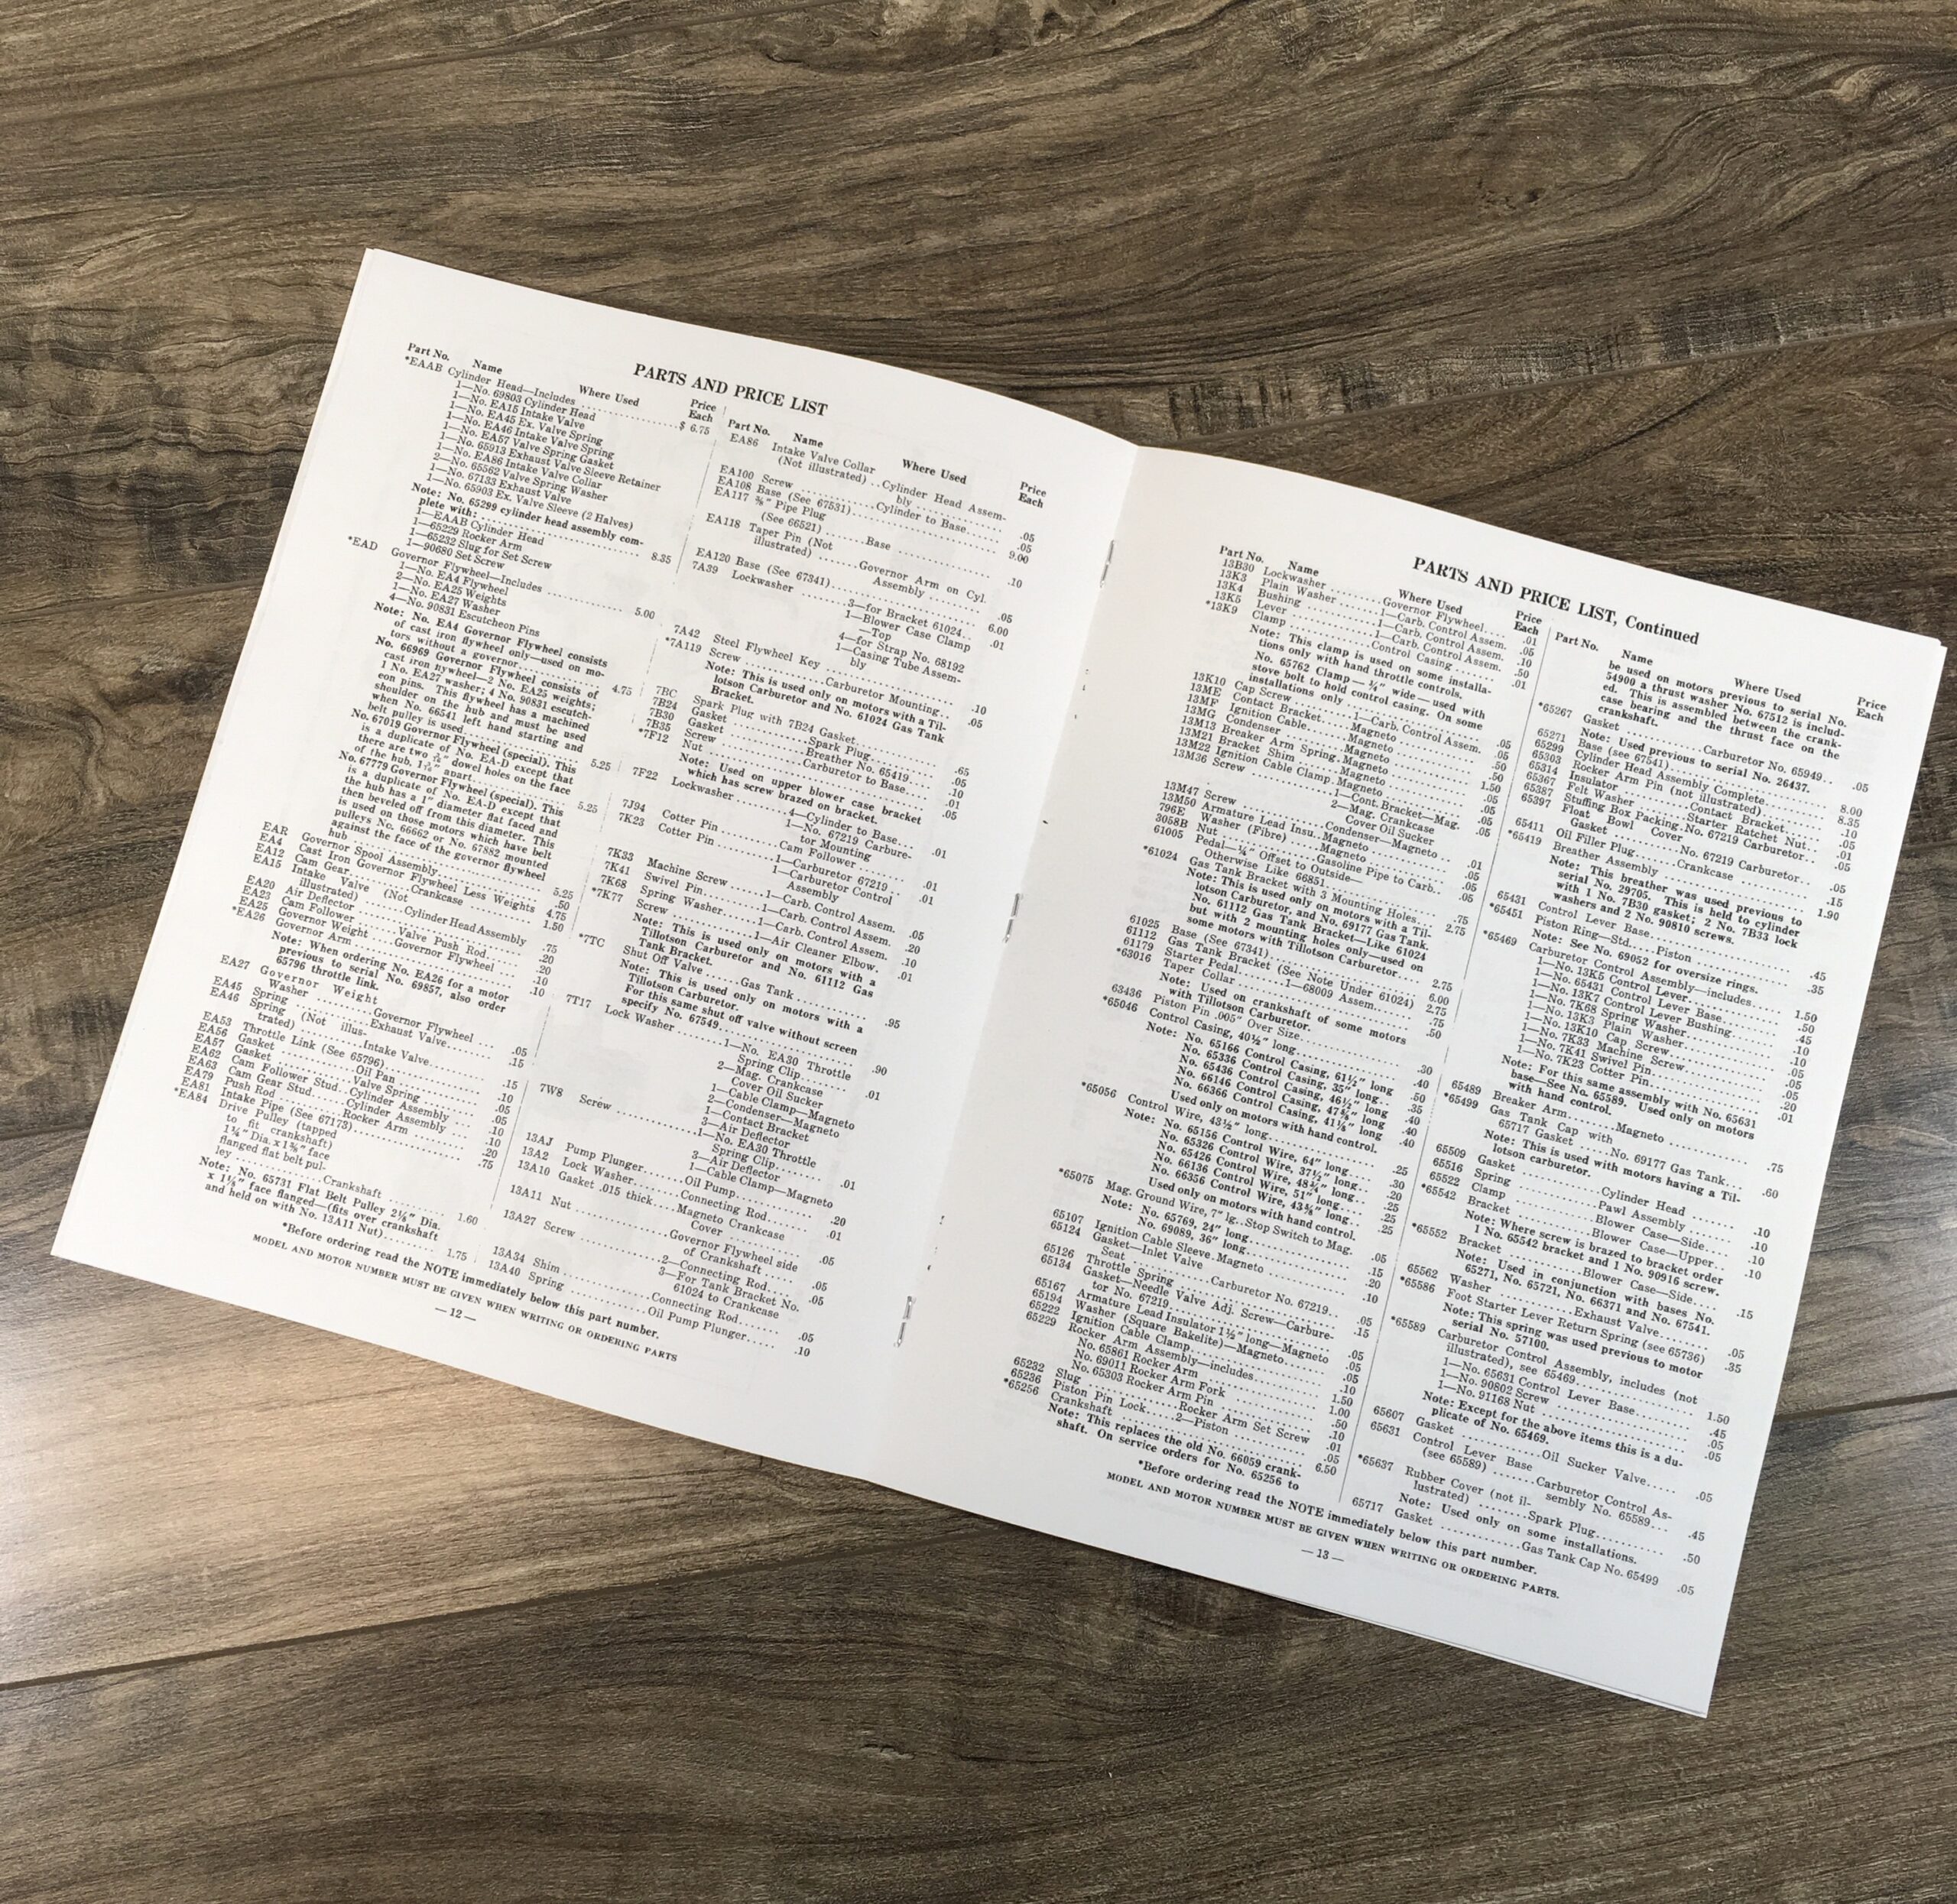 PARTS AND PRICE LIST
Part No. Name Where Used Price Each
*EAAB Cylinder Head—Includes $ 6.75
1—No. 69803 Cylinder Head
1—No. EA15 Intake Valve
1—No. EA45 Ex. Valve Spring
1—No. EA46 Intake Valve Spring
1—No. EA57 Valve Spring Gasket
1—No. 65913 Exhaust Valve Sleeve Retainer
2—No. EA86 Intake Valve Collar
1—No. 65562 Valve Spring Washer
1—No. 67133 Exhaust Valve
1—No. 65903 Ex. Valve Sleeve (2 Halves)
Note: No. 65299 cylinder head assembly com-
plete with: 8.35
1—EAAB Cylinder Head
1—65229 Rocker Arm
1—65232 Slug for Set Screw
1—90680 Set Screw
*EAD Governor Flywheel—Includes 5.00
1—No. EA4 Flywheel
2—No. EA25 Weights
1—No. EA27 Washer
4—No. 90831 Escutcheon Pins
Note: No. EA4 Governor Flywheel consists
of cast iron flywheel only—used on mo-
tors without a governor 4.75
No. 66969 Governor Flywheel consists of
cast iron flywheel—2 No. EA25 weights;
1 No. EA27 washer; 4 No. 90831 escutch-
eon pins. This flywheel has a machined
shoulder on the hub and must be used
when No. 66541 left hand starting and
belt pulley is used 5.25
No. 67019 Governor Flywheel (special). This
is a duplicate of No. EA-D except that
there are two dowel holes on the face
of the hub, apart 5.25
No. 67779 Governor Flywheel (special). This
is a duplicate of No. EA-D except that
the hub has a 1" diameter flat faced and
then beveled off from this diameter. This
is used on those motors which have belt
pulleys No. 66662 or No. 67882 mounted
against the face of the governor flywheel
hub 5.25
EAR Governor Spool Assembly .50
EA4 Cast Iron Governor Flywheel Less Weights 4.75
EA12 Cam Gear Crankcase 1.50
EA15 Intake Valve (Not
illustrated) Cylinder Head Assembly .75
EA20 Air Deflector .20
EA23 Cam Follower Valve Push Rod .20
EA25 Governor Weight Governor Flywheel .10
*EA26 Governor Arm .10
Note: When ordering No. EA26 for a motor
previous to serial No. 69857, also order
65796 throttle link.
EA27 Governor Weight
Washer Governor Flywheel .05
EA45 Spring Exhaust Valve .15
EA46 Spring (Not illus-
trated) Intake Valve .15
EA53 Throttle Link (See 65796) .10
EA56 Gasket Oil Pan .05
EA57 Gasket Valve Spring .05
EA62 Cam Follower Stud Cylinder Assembly .10
EA63 Cam Gear Stud Cylinder Assembly .10
EA79 Push Rod Rocker Arm .20
EA81 Intake Pipe (See 67173) .75
*EA84 Drive Pulley (tapped
to fit crankshaft)
1¼" Dia. x 1⅝" face
flanged flat belt pul-
ley Crankshaft 1.60
Note: No. 65731 Flat Belt Pulley 2⅛" Dia.
x 1⅛" face flanged—(fits over crankshaft
and held on with No. 13A11 Nut) 1.75
Part No. Name Where Used Price Each
EA86 Intake Valve Collar
(Not illustrated) Cylinder Head Assem-
bly .05
EA100 Screw Cylinder to Base .05
EA108 Base (See 67531) 9.00
EA117 ⅜" Pipe Plug
(See 66521) Base .10
EA118 Taper Pin (Not
illustrated) Governor Arm on Cyl.
Assembly .05
EA120 Base (See 67341) 6.00
7A39 Lockwasher 3—for Bracket 61024 .01
1—Blower Case Clamp
—Top
4—for Strap No. 68192
1—Casing Tube Assem-
bly
7A42 Steel Flywheel Key .10
*7A119 Screw Carburetor Mounting .05
Note: This is used only on motors with a Til-
lotson Carburetor and No. 61024 Gas Tank
Bracket.
7BC Spark Plug with 7B24 Gasket .65
7B24 Gasket Spark Plug .05
7B30 Gasket Breather No. 65419 .10
7B35 Screw Carburetor to Base .01
*7F12 Nut .05
Note: Used on upper blower case bracket
which has screw brazed on bracket.
7F22 Lockwasher 4—Cylinder to Base .01
1—No. 67219 Carbure-
tor Mounting
7J94 Cotter Pin Cam Follower .01
7K23 Cotter Pin 1—Carburetor 67219 .01
1—Carburetor Control
Assembly
7K33 Machine Screw 1—Carb. Control Assem. .05
7K41 Swivel Pin 1—Carb. Control Assem. .20
7K68 Spring Washer 1—Carb. Control Assem. .10
*7K77 Screw 1—Air Cleaner Elbow .01
Note: This is used only on motors with a
Tillotson Carburetor and No. 61112 Gas
Tank Bracket.
*7TC Shut Off Valve Gas Tank .95
Note: This is used only on motors with a
Tillotson Carburetor.
For this same shut off valve without screen
specify No. 67549 .90
7T17 Lock Washer 1—No. EA30 Throttle
Spring Clip .01
2—Mag. Crankcase
Cover Oil Sucker
1—Cable Clamp—Magneto
2—Condenser—Magneto
1—Contact Bracket
3—Air Deflector
7W8 Screw 1—No. EA30 Throttle
Spring Clip .01
3—Air Deflector
1—Cable Clamp—Magneto
13AJ Pump Plunger Oil Pump .20
13A2 Lock Washer Connecting Rod .01
13A10 Gasket .015 thick Magneto Crankcase
Cover .05
13A11 Nut Governor Flywheel side
of Crankshaft .05
13A27 Screw 2—Connecting Rod .05
3—For Tank Bracket No.
61024 to Crankcase
13A34 Shim Connecting Rod .05
13A40 Spring Oil Pump Plunger .10
*Before ordering read the NOTE immediately below this part number.
MODEL AND MOTOR NUMBER MUST BE GIVEN WHEN WRITING OR ORDERING PARTS
—12—
PARTS AND PRICE LIST, Continued
Part No. Name Where Used Price Each
13B30 Lockwasher Governor Flywheel .01
13K3 Plain Washer 1—Carb. Control Assem. .05
13K4 Bushing 1—Carb. Control Assem. .10
13K5 Lever 1—Carb. Control Assem. .50
*13K9 Clamp Control Casing .01
Note: This clamp is used on some installa-
tions only with hand throttle controls.
No. 65762 Clamp—¼" wide—used with
stove bolt to hold control casing. On some
installations only .05
13K10 Cap Screw 1—Carb. Control Assem. .10
13ME Contact Bracket Magneto .50
13MF Ignition Cable Magneto .50
13MG Condenser Magneto 1.50
13M13 Breaker Arm Spring Magneto .05
13M21 Bracket Shim Magneto .05
13M22 Ignition Cable Clamp Magneto .05
13M36 Screw 1—Cont. Bracket—Mag. .05
2—Mag. Crankcase
Cover Oil Sucker
13M47 Screw Condenser—Magneto .01
13M50 Armature Lead Insu. Magneto .10
796E Washer (Fibre) Magneto .05
3058B Nut Gasoline Pipe to Carb. .05
61005 Pedal—¼" Offset to Outside—
Otherwise Like 66851 .75
*61024 Gas Tank Bracket with 3 Mounting Holes 2.75
Note: This is used only on motors with a Til-
lotson Carburetor, and No. 69177 Gas Tank.
No. 61112 Gas Tank Bracket—Like 61024
but with 2 mounting holes only—used on
some motors with Tillotson Carburetor 2.75
61025 Base (See 67341) 6.00
61112 Gas Tank Bracket (See Note Under 61024) 2.75
61179 Starter Pedal 1—68009 Assem. .75
*63016 Taper Collar .50
Note: Used on crankshaft of some motors
with Tillotson Carburetor.
63436 Piston Pin .005" Over Size .30
*65046 Control Casing, 40½" long .40
Note: No. 65166 Control Casing, 61½" long .50
No. 65336 Control Casing, 35" long .35
No. 65436 Control Casing, 46½" long .40
No. 66146 Control Casing, 47⅝" long .40
No. 66366 Control Casing, 41⅛" long .40
Used only on motors with hand control.
*65056 Control Wire, 43½" long .25
Note: No. 65156 Control Wire, 64" long .30
No. 65326 Control Wire, 37½" long .20
No. 65426 Control Wire, 48¾" long .25
No. 66136 Control Wire, 51" long .25
No. 66356 Control Wire, 43⅝" long .25
Used only on motors with hand control.
*65075 Mag. Ground Wire, 7" lg. Stop Switch to Mag. .05
Note: No. 65769, 24" long .15
No. 69089, 36" long .20
65107 Ignition Cable Sleeve Magneto .10
65124 Gasket—Inlet Valve
Seat Carburetor No. 67219 .05
65126 Throttle Spring .15
65134 Gasket—Needle Valve Adj. Screw—Carbure-
tor No. 67219 .05
65167 Armature Lead Insulator 1½" long—Magneto .05
65194 Washer (Square Bakelite)—Magneto .05
65222 Ignition Cable Clamp .10
65229 Rocker Arm Assembly—includes 1.50
No. 65861 Rocker Arm 1.00
No. 69011 Rocker Arm Fork .50
No. 65303 Rocker Arm Pin .10
65232 Slug Rocker Arm Set Screw .01
65236 Piston Pin Lock 2—Piston .05
*65256 Crankshaft 6.50
Note: This replaces the old No. 66059 crank-
shaft. On service orders for No. 65256 to
Part No. Name Where Used Price Each
be used on motors previous to serial No.
54900 a thrust washer No. 67512 is includ-
ed. This is assembled between the crank-
case bearing and the thrust face on the
crankshaft.
*65267 Gasket Carburetor No. 65949 .05
Note: Used previous to serial No. 26437.
65271 Base (see 67541) 8.00
65299 Cylinder Head Assembly Complete 8.35
65303 Rocker Arm Pin (not illustrated) .10
65314 Insulator Contact Bracket .05
65367 Felt Washer Starter Ratchet Nut .01
65387 Stuffing Box Packing No. 67219 Carburetor .05
65397 Float Bowl Cover
Gasket No. 67219 Carburetor .05
65411 Oil Filler Plug Crankcase .15
*65419 Breather Assembly 1.90
Note: This breather was used previous to
serial No. 29705. This is held to cylinder
with 1 No. 7B30 gasket; 2 No. 7B33 lock
washers and 2 No. 90810 screws.
65431 Control Lever Base .45
*65451 Piston Ring—Std. Piston .35
Note: See No. 69052 for oversize rings.
*65469 Carburetor Control Assembly—includes 1.50
1—No. 13K5 Control Lever .50
1—No. 65431 Control Lever Base .45
1—No. 13K7 Control Lever Bushing .10
1—No. 7K68 Spring Washer .10
1—No. 13K3 Plain Washer .05
1—No. 13K10 Cap Screw .10
1—No. 7K33 Machine Screw .05
1—No. 7K41 Swivel Pin .20
1—No. 7K23 Cotter Pin .01
Note: For this same assembly with No. 65631
base—See No. 65589. Used only on motors
with hand control.
65489 Breaker Arm Magneto .75
*65499 Gas Tank Cap with
65717 Gasket No. 69177 Gas Tank .60
Note: This is used with motors having a Til-
lotson carburetor.
65509 Gasket Cylinder Head .10
65516 Spring Pawl Assembly .10
65522 Clamp Blower Case—Side .10
*65542 Bracket Blower Case—Upper .10
Note: Where screw is brazed to bracket order
1 No. 65542 bracket and 1 No. 90916 screw.
*65552 Bracket Blower Case—Side .15
Note: Used in conjunction with bases No.
65271, No. 65721, No. 66371 and No. 67541.
65562 Washer Exhaust Valve .05
*65586 Foot Starter Lever Return Spring (see 65736) .35
Note: This spring was used previous to motor
serial No. 57100.
*65589 Carburetor Control Assembly, includes (not
illustrated), see 65469 1.50
1—No. 65631 Control Lever Base .45
1—No. 90802 Screw .05
1—No. 91168 Nut .05
Note: Except for the above items this is a du-
plicate of No. 65469.
65607 Gasket Oil Sucker Valve .05
65631 Control Lever Base
(see 65589) Carburetor Control As-
sembly No. 65589 .45
*65637 Rubber Cover (not il-
lustrated) Spark Plug .50
Note: Used only on some installations.
65717 Gasket Gas Tank Cap No. 65499 .05
*Before ordering read the NOTE immediately below this part number.
MODEL AND MOTOR NUMBER MUST BE GIVEN WHEN WRITING OR ORDERING PARTS.
—13—